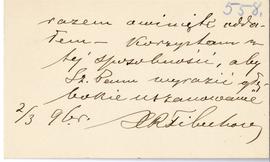 558.
razem owinięte odda-
łem – Korzystam z
tej sposobności, aby
Sz. Panu wyrazić głę-
bokie uszanowanie
2/3 96 r.